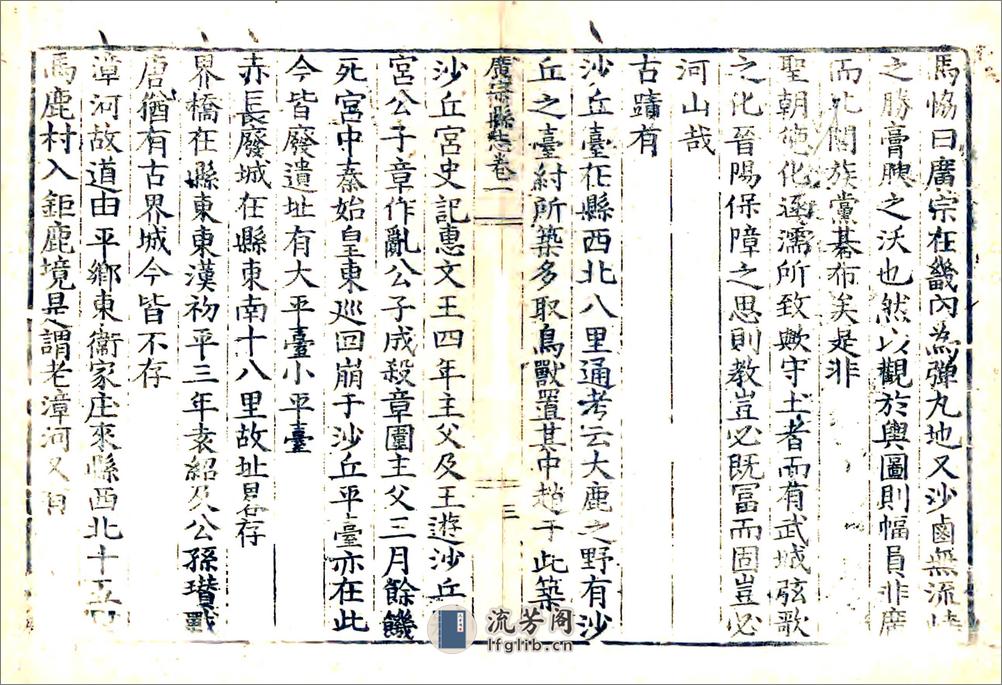 馬恊曰廣宗在畿內為彈丸地又沙鹵無流
之勝膏腴之沃也然以觀於輿圖則幅員非廣
而比閭族黨棊布矣是非
聖朝德化逐濡所致歟守土者而有武城弦歌
之化晉陽保障之思則教豈必既冨而固豈必
河山哉
古蹟有
沙丘臺在縣西北八里通考云大鹿之野有沙
丘之臺紂所築多取鳥獸置其中趙于此築
廣宗縣志卷一
三
沙丘宮史記惠文王四年主父及王遊沙丘
宮公子章作亂公子成殺章圍主父三月餘饑
死宮中秦始皇東巡回崩于沙丘平臺亦在此
今皆廢遺址有大平臺小平臺
赤長廢城在縣東南十八里故址畧存
界橋在縣東東漢初平三年袁紹及公孫瓚戰
唐猶有古界城今皆不存
漳河故道由平鄉東衞家庄來縣西北十五
馬鹿村入鉅鹿境是謂老漳河又自
流芳阁
lfglib.cn